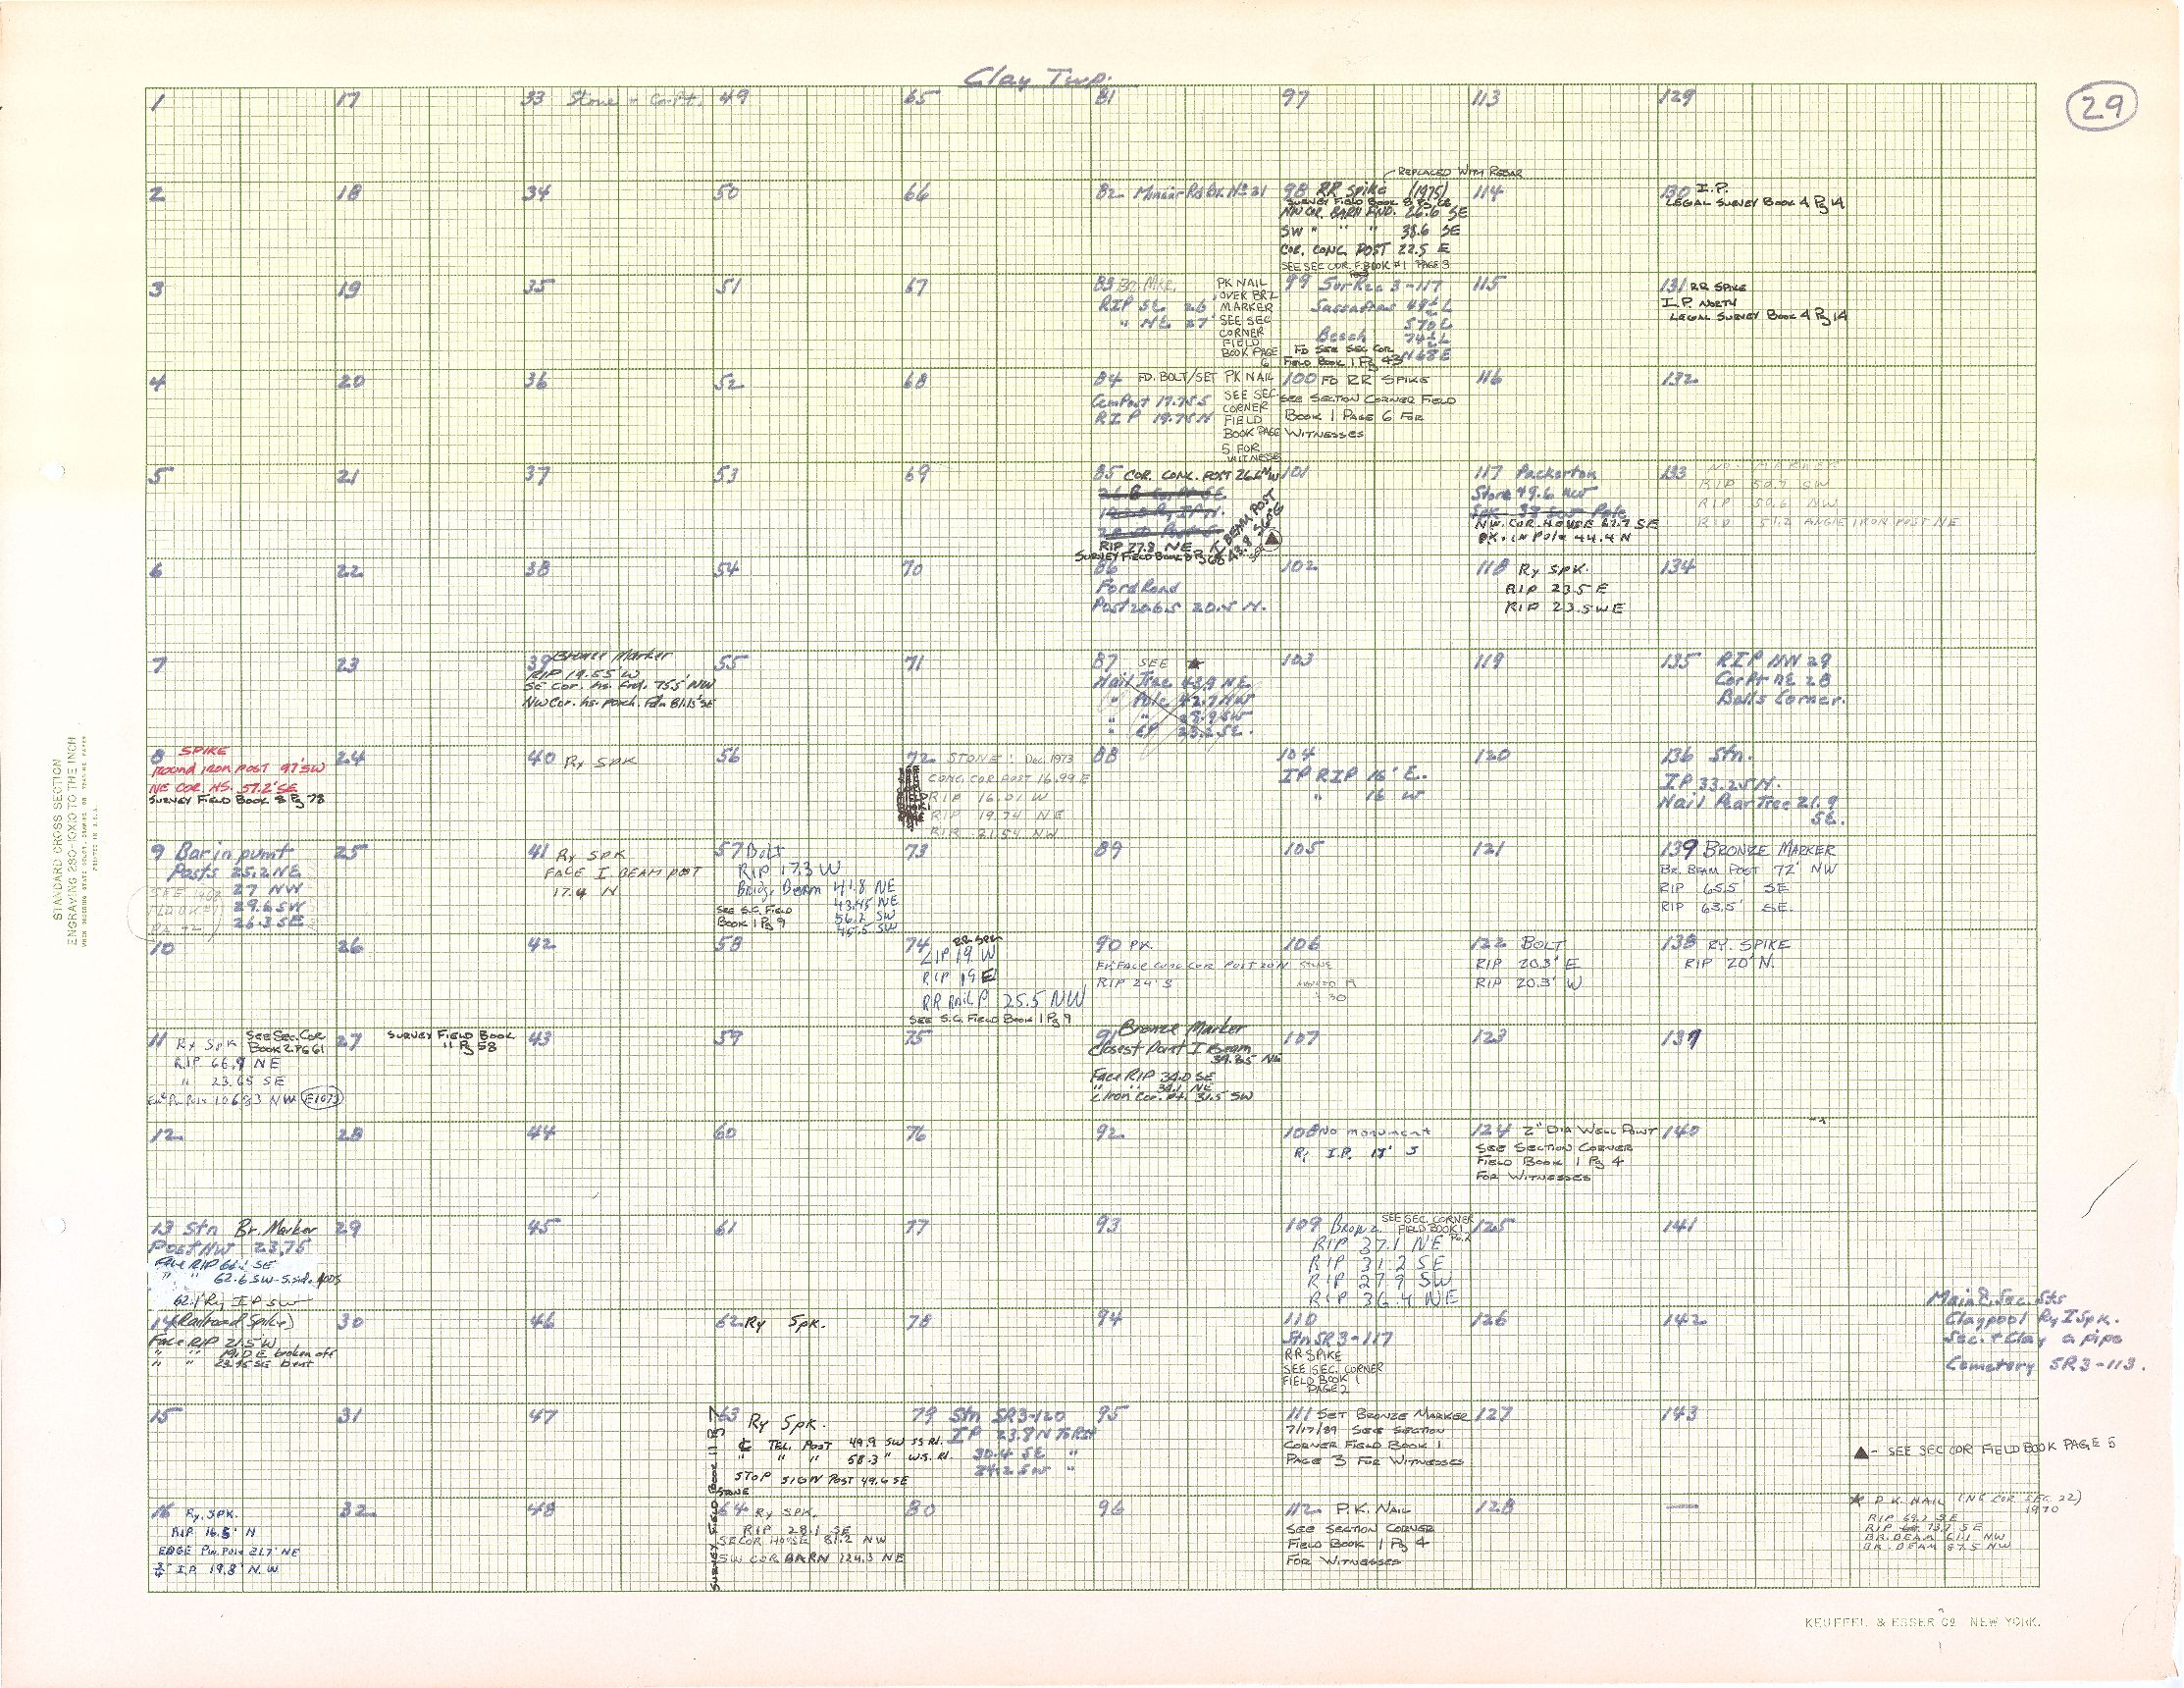 Clay Twp.
29
1
17
33 Stone - Cor. Pt.
49
65
81
97
113
129
2
18
34
50
66
82 Minear Rd. Bk. No 31
REPLACED WITH REBAR
98 RR Spike (1975)
SURVEY FIELD BOOK 8 Pg 68
NW COR. BARN FND. 26.6 SE
SW " " " 38.6 SE
COR. CONC. POST 22.5 E
SEE SEC COR. F. BOOK #1 PAGE 3
114
130 I.P.
LEGAL SURVEY BOOK 4 Pg 14
3
19
35
51
67
83 Br. Mkr.
RIP SE 26'
" NE 27'
PK NAIL
OVER BRZ
MARKER
SEE SEC
CORNER
FIELD
BOOK PAGE
6
99 Sur Rec 3-117
Sassafras 49½ L
S70E
Beech 74½ L
N68E
FD SEE SEC COR
FIELD BOOK 1 Pg 43
115
131 RR SPIKE
I.P. NORTH
LEGAL SURVEY BOOK 4 Pg 14
4
20
36
52
68
84 FD. BOLT/SET PK NAIL
Cem Post 17.75 S
RIP 19.75 N
SEE SEC.
CORNER
FIELD
BOOK PAGE
5 FOR
WITNESS
100 FD RR SPIKE
SEE SECTION CORNER FIELD
BOOK 1 PAGE 6 FOR
WITNESSES
116
132
5
21
37
53
69
85 COR. CONC. POST 26.6 NW
RIP 27.8 NE
SURVEY FIELD BOOK 8 Pg 68
I BEAM POST
43.8 S60°E
SEE ▲
101
117 Packerton
Store 49.6 NW
Spk 38 SW Pole
N.W. COR. HOUSE 62.7 SE
P.K. IN Pole 44.4 N
133 NO. MARKER
RIP 50.7 SW
RIP 50.6 NW
RIP 51.2 ANGLE IRON POST NE
6
22
38
54
70
86
Ford Road
Post 20.6 S 20.5 N.
102
118 Ry SPK.
RIP 23.5 E
RIP 23.5 W E
134
7
23
39 Bronze Marker
RIP 19.55 W
SE Cor. hs. Fnd. 75.5' NW
NW Cor. hs. porch. Fdn 81.15' SE
55
71
87 SEE ★
Nail Tree 43.9 NE
" Pole 42.7 NW
" " 25.9 SW
" EP 23.2 SE.
103
119
135 RIP NW 29
Cor Pt NE 28
Balls Corner.
8 SPIKE
ROUND IRON POST 97' SW
NE COR. HS. 57.2' SE
SURVEY FIELD BOOK 8 Pg 78
24
40 Ry SPK
56
72 STONE: Dec. 1973
CONC. COR. POST 16.99 E
RIP 16.01 W
RIP 19.74 NE
RIR 21.54 NW
88
104
IP RIP 16' E.
" 16 W
120
136 Stn.
IP 33.25 N.
Nail Pear Tree 21.9
SE.
9 Bar in pvmt
Posts 25.2 NE
27 NW
29.6 SW
26.3 SE
25
41 Ry SPK
FACE I BEAM POST
17.4 N
57 Bolt
RIP 17.3 W
Bridg. Beam 41.8 NE
43.45 NE
56.2 SW
45.5 SW
SEE S.C. FIELD
BOOK 1 Pg 9
73
89
105
121
139 BRONZE MARKER
BR. BEAM POST 72' NW
RIP 65.5' SE
RIP 63.5' SE.
10
26
42
58
74 RR SPK
LIP 19 W
RIP 19 E
RR RAIL P 25.5 NW
SEE S.C. FIELD BOOK 1 Pg 9
90 PK.
FK. FACE CONC COR POST 20 N
RIP 24' S
106 STONE
122 BOLT
RIP 20.3' E
RIP 20.3' W
138 RY. SPIKE
RIP 20' N.
11 Ry SPK
SEE SEC. COR
BOOK 2 PG 61
RIP 66.9 NE
" 23.65 SE
E1073
27
SURVEY FIELD BOOK
11 Pg 58
43
59
75
91 Bronze Marker
Closest Point I Beam
39.85 NE
Face RIP 34.0 SE
" " 34.1 NE
¢ Iron Cor. Pt. 31.5 SW
107
123
139
12
28
44
60
76
92
108 No monument
Ry I.P. 17' S
124 2" DIA WELL POINT
SEE SECTION CORNER
FIELD BOOK 1 Pg 4
FOR WITNESSES
140
13 Stn Br. Marker
Post NW 23.75
Face RIP 66.1 SE
" " 62.6 SW
62.1' Ry I P SW
29
45
61
77
93
109 Bronz
SEE SEC. CORNER
FIELD BOOK 1
PG. 2
RIP 37.1 NE
RIP 31.2 SE
RIP 27.9 SW
RIP 36.4 NE
125
141
14 (Railroad Spike)
Face RIP 21.5 W
" " 19.0 E broken off
" " 23.95 SE bent
30
46
62 Ry Spk.
78
94
110
Stn SR3-117
RR SPIKE
SEE SEC. CORNER
FIELD BOOK 1
PAGE 2
126
142
Main & Sec. Sts
Claypool Ry I Spk.
Sec. + Clay a pipe
Cemetery SR3-113.
15
31
47
63 Ry Spk.
¢ TEL. POST 49.9 SW SS Rd.
" " " 58.3 " W.S. Rd.
STOP SIGN POST 49.6 SE
79 Stn SR3-120
IP 23.8 N To RIP
30.4 SE "
24.2 SW "
95
111 SET BRONZE MARKER
7/17/89 SEE SECTION
CORNER FIELD BOOK 1
PAGE 3 FOR WITNESSES
127
143
▲ - SEE SEC COR FIELD BOOK PAGE 5
16 Ry. SPK.
RIP 16.5' N
EDGE Pw. Pole 21.7' NE
¾" I.P. 19.8' N.W
32
48
STONE
64 Ry SPK.
RIP 28.1 SE
SE COR HOUSE 81.2 NW
SW COR BARN 124.3 NE
80
96
112 P.K. NAIL
SEE SECTION CORNER
FIELD BOOK 1 Pg 4
FOR WITNESSES
128
—
★ P.K. NAIL (NE COR SEC. 22)
1970
RIP 69.7 SE
RIP 73.7 SE
BR. BEAM 61.1 NW
BR. BEAM 67.5 NW
STANDARD CROSS SECTION
ENGRAVING 280-10X10 TO THE INCH
KEUFFEL & ESSER CO. NEW YORK.